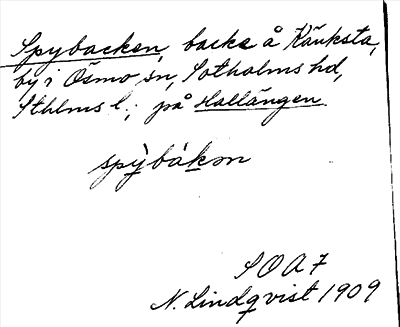 Spybacken, backe å Känksta,
by i Ösmo sn, Sotholms hd,
Sthlms l.; på Hallängen
spỳbák̲ən
S O A 7
N. Lindqvist 1909